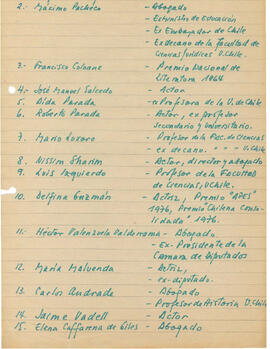 2.- Máximo Pacheco - Abogado
- Exministro de Educación
- Ex Embajador de Chile
- Ex Decano de la Facultad de Ciencias Jurídicas U. Chile.
3.- Francisco Coloane - Premio Nacional de Literatura 1964
4.- José Manuel Salcedo - Actor
5. Aída Parada - Profesora de la U. de Chile
6. Roberto Parada - Actor, ex profesor
secundario y universitario.
7. Mario Luxoro - Profesor de la Fac. de Ciencias
- ex decano. " " U. Chile
8. Nissim Sharim - Actor, director y abogado
9. Luis Izquierdo - Profesor de la Facultad
de Ciencias, U. Chile.
10. Delfina Guzmán - Actriz, Premio "APES"
1976, Premio Chilena Conso-
lidada 1976.
11. - Héctor Valenzuela Valderrama - Abogado
- Ex-Presidente de la
Cámara de Diputados
12. María Maluenda - Actriz,
- ex-diputado.
13. Carlos Andrade - Abogado
- Profesor de Historia U. Chile
14. Jaime Vadell - Actor
15. Elena Caffarena de Giles - Abogado